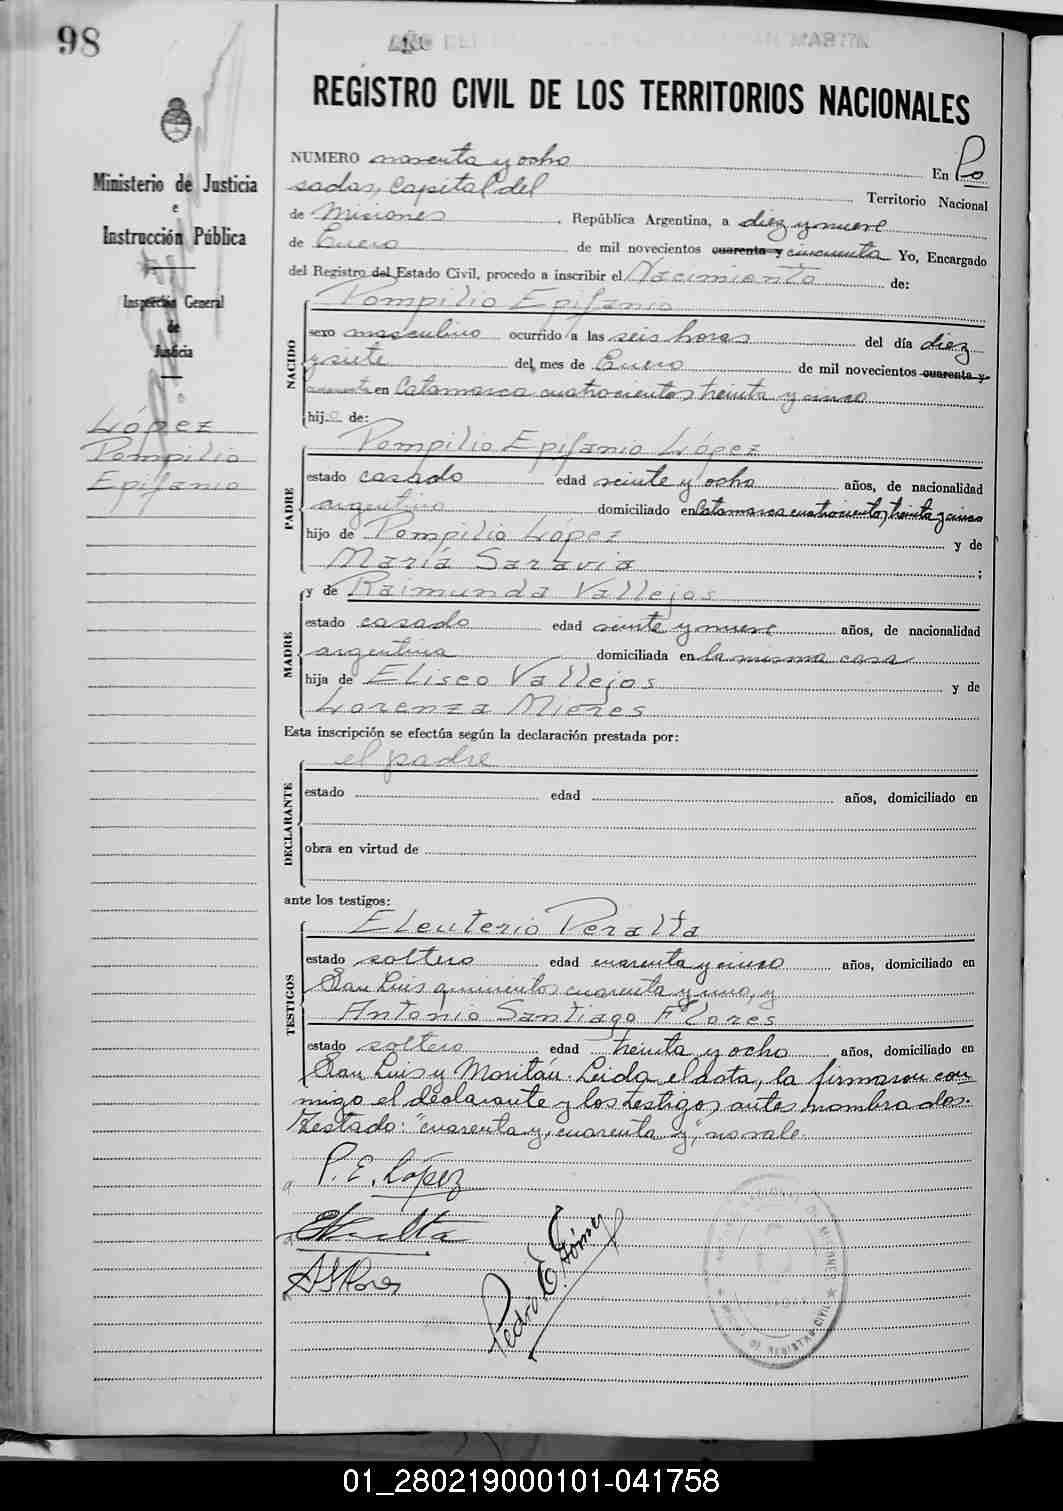 98
AÑO DEL SAN MARTIN
REGISTRO CIVIL DE LOS TERRITORIOS NACIONALES
Ministerio de Justicia
e
Instrucción Pública
Inspección General
de
Justicia
López
Pompilio
Epifanio
NUMERO noventa y ocho En Po
sadas, Capital del Territorio Nacional
de Misiones, República Argentina, a diez y nueve
de Enero de mil novecientos cuarenta y cincuenta Yo, Encargado
del Registro del Estado Civil, procedo a inscribir el Nacimiento de:
NACIDO
Pompilio Epifanio
sexo masculino ocurrido a las seis horas del día diez
y siete del mes de Enero de mil novecientos cuarenta y
en Catamarca cuatrocientos treinta y cinco
hijo de:
PADRE
Pompilio Epifanio López
estado casado edad veinte y ocho años, de nacionalidad
argentino domiciliado en Catamarca cuatrocientos treinta y cinco
hijo de Pompilio López y de
María Saravia;
MADRE
y de Raimunda Vallejos
estado casado edad veinte y nueve años, de nacionalidad
argentina domiciliada en la misma casa
hija de Eliseo Vallejos y de
Lorenza Mieres
Esta inscripción se efectúa según la declaración prestada por:
DECLARANTE
el padre
estado edad años, domiciliado en
obra en virtud de
ante los testigos:
TESTIGOS
Eleuterio Peralta
estado soltero edad cuarenta y cinco años, domiciliado en
San Luis quinientos cuarenta y uno, y
Antonio Santiago Flores
estado soltero edad treinta y ocho años, domiciliado en
San Luis y Moritán. Leida el acta, la firmaron con
migo el declarante y los testigos antes nombrados.
Testado: "cuarenta y, cuarenta y", no vale.
P. E. López
EPeralta
ASFlores
Pedro E. Gómez
DE MISIONES
REGISTRO CIVIL
01_280219000101-041758